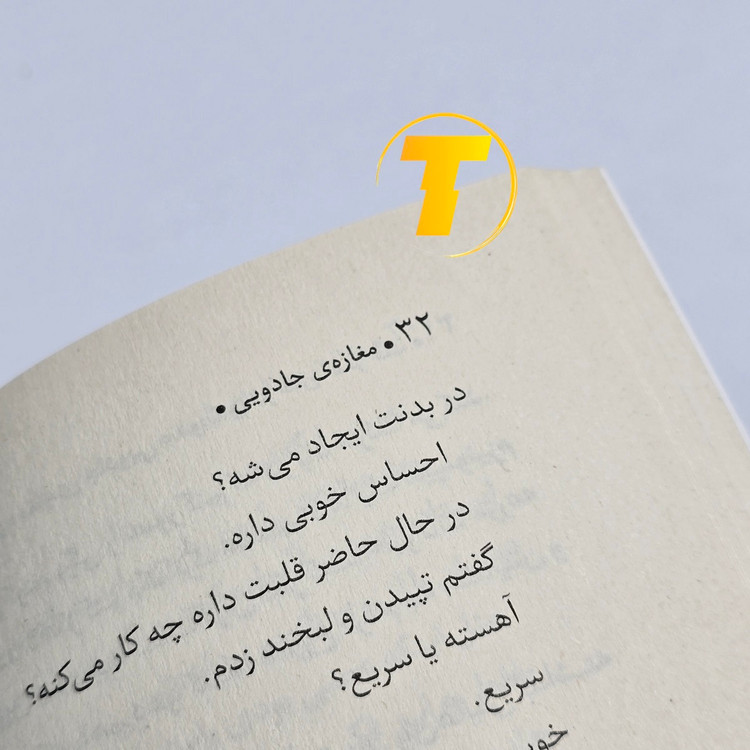 T
۳۲ • مغازه‌ی جادویی •
در بدنت ایجاد می‌شه؟
احساس خوبی داره.
در حال حاضر قلبت داره چه کار می‌کنه؟
گفتم تپیدن و لبخند زدم.
آهسته یا سریع؟
سریع.